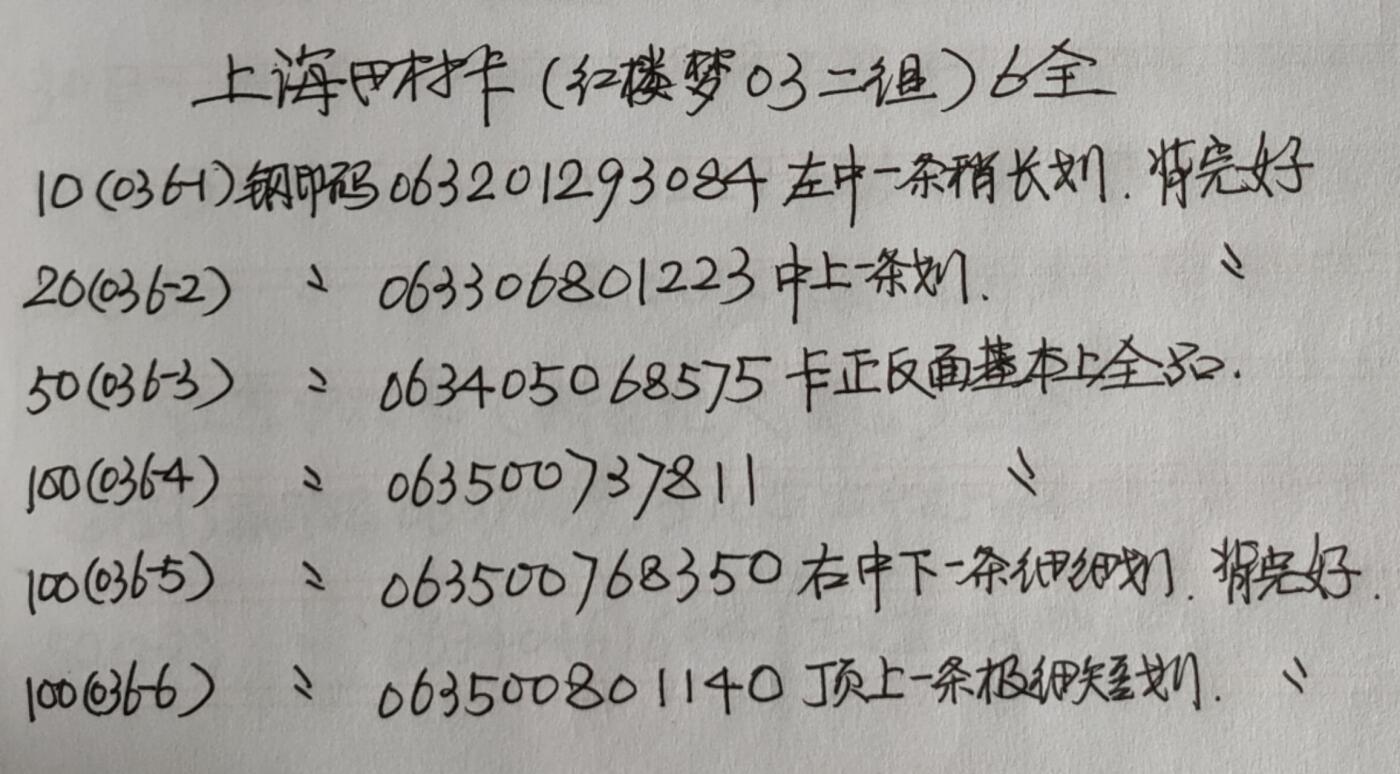 上海田村卡（红楼梦03二组）6全
10(036-1)钢印码063201293084左中一条稍长划.背完好
20(036-2) 〃 063306801223中上一条划. 〃
50(036-3) 〃 063405068575卡正反面基本上全品.
100(036-4) 〃 063500737811 〃
100(036-5) 〃 063500768350右中下一条细细划.背完好.
100(036-6) 〃 063500801140顶上一条极细短划. 〃